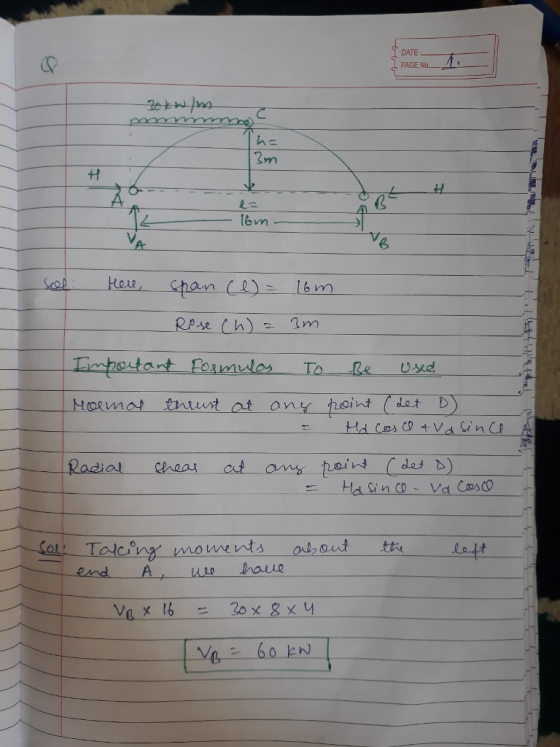 Q
DATE
PAGE No. 1.
30 kN/m
C
h=
3m
H
A
B
H
l=
16m
VA
VB
Sol: Here, span (l) = 16m
Rise (h) = 3m
Important Formulas To Be Used
Normal thrust at any point (let D)
= Hd cosθ + Vd sinθ
Radial shear at any point (let D)
= Hd sinθ - Vd cosθ
Sol: Taking moments about the left
end A, we have
VB × 16 = 30 × 8 × 4
VB = 60 kN